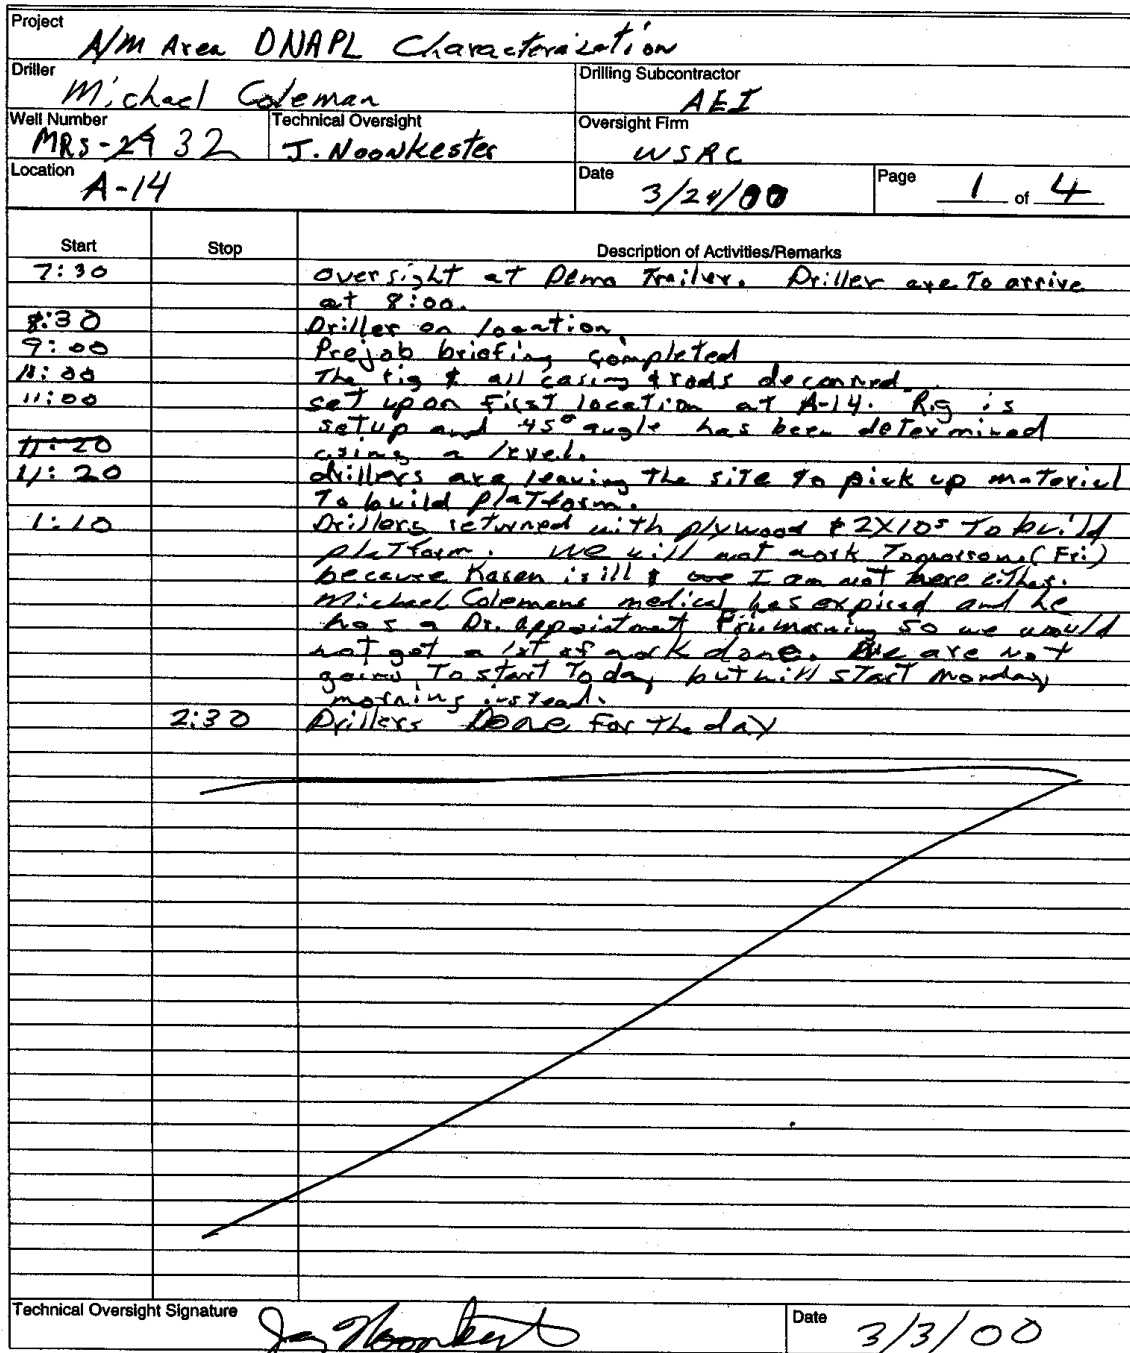 Project
A/M Area DNAPL Characterization
Driller
Michael Coleman
Drilling Subcontractor
AEI
Well Number
MRS-29 32
Technical Oversight
J. Noonkester
Oversight Firm
WSRC
Location
A-14
Date
3/24/00
Page 1 of 4
Start Stop Description of Activities/Remarks
7:30 oversight at Demo Trailer. Driller are To arrive
at 8:00.
8:30 Driller on location
9:00 Prejob briefing completed
The rig & all casing & rods deconned
11:00 set up on first location at A-14. Rig is
setup and 45° angle has been determined
11:20 using a level.
11:20 drillers are leaving the site to pick up material
To build platform.
1:10 Drillers returned with plywood & 2X10s To build
platform. We will not work Tomorrow (Fri)
because Karen is ill & I am not here either.
Michael Colemans medical has expired and he
has a Dr. appointment Fri. morning so we would
not get a lot of work done. We are not
going To start Today but will start Monday
morning instead.
2:30 Drillers Done for the day
Technical Oversight Signature
Jay Noonkest
Date 3/3/00